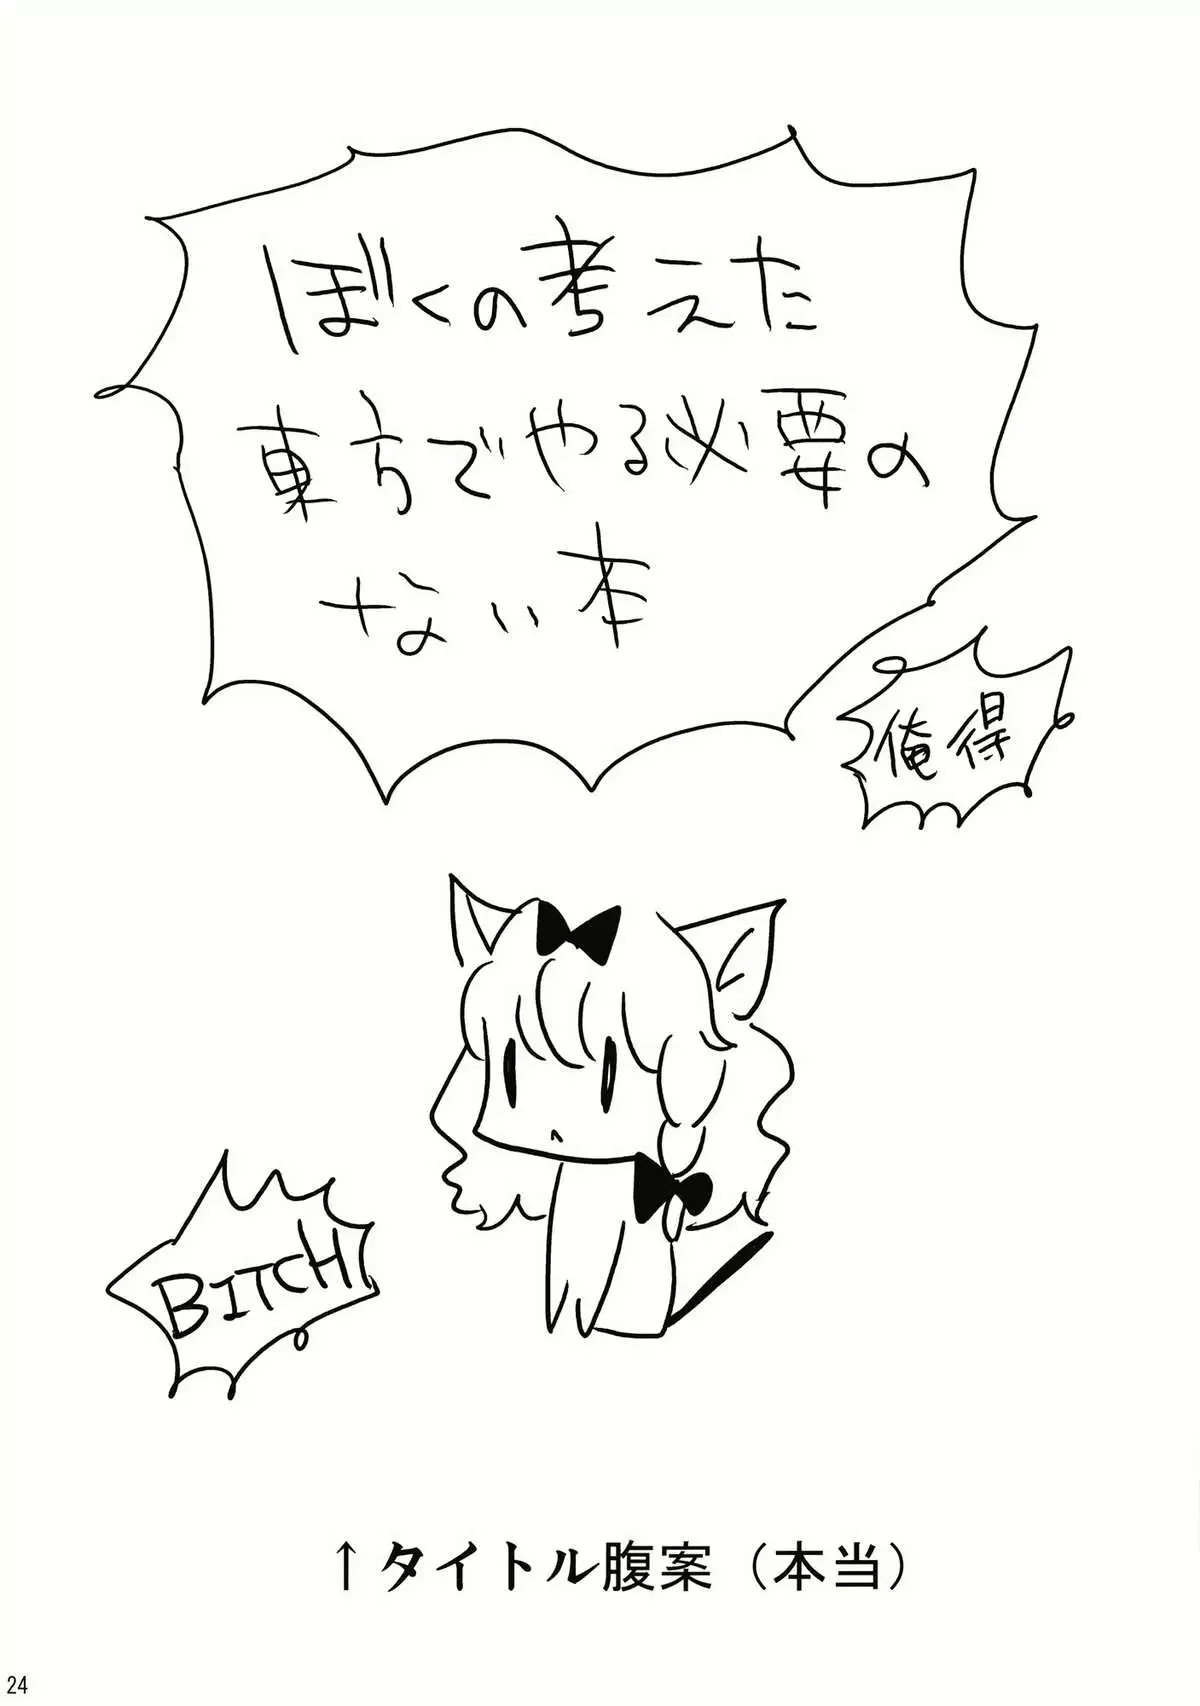 ぼくの考えた
東方でやる必要の
ない本
俺得
BITCH
↑タイトル腹案（本当）
24